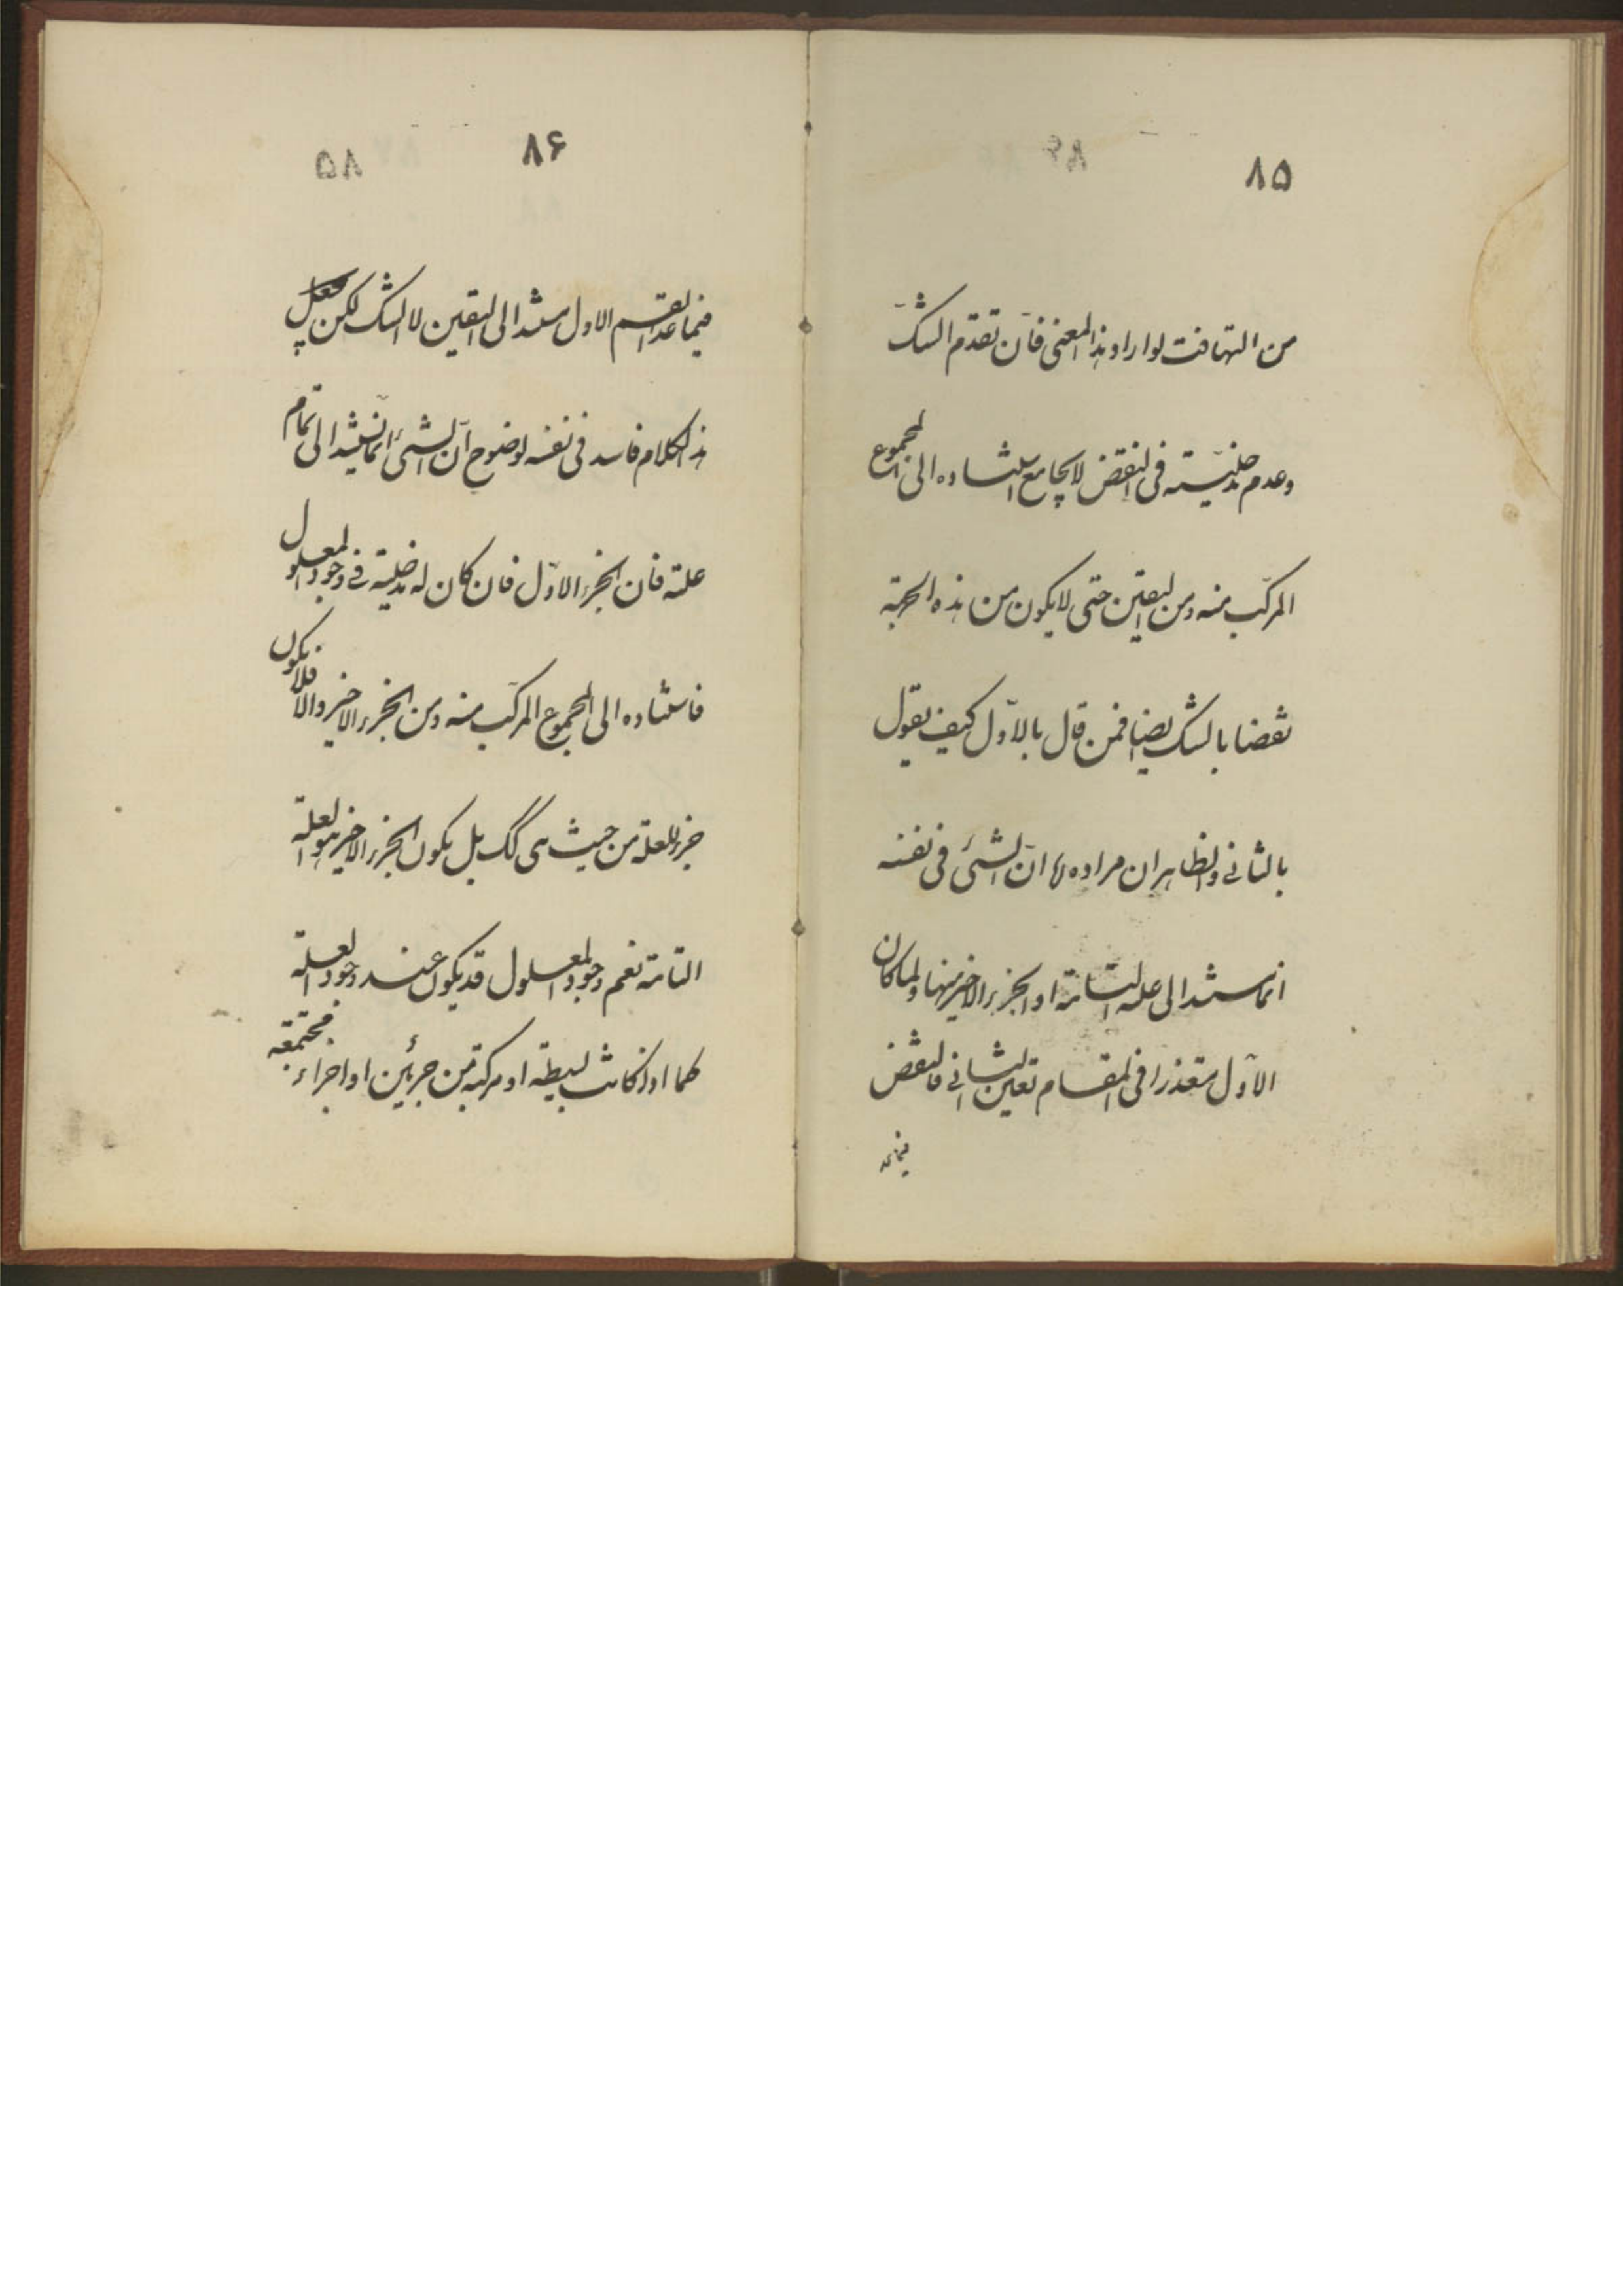 ٨۵
من التهافت لو اراد هذا المعنى فانّ تقدّم الشكّ
وعدم مدخليّته فى النقض لا يجامع استناده الى المجموع
المركّب منه ومن اليقين حتى لا يكون من هذه الجهة
نقضا بالشك ايضا فمن قال بالاوّل كيف يقول
بالثانى والظاهر ان مراده انّ الشئ فى نفسه
انما يستند الى علته التامّة او الجزء الاخير منها ولما كان
الاوّل متعذرا فى المقام تعين الثانى فالنقض
فيما عد
٨۶
فيما عدا القسم الاول مستند الى اليقين لا الشك لكن
هذا الكلام فاسد فى نفسه لوضوح انّ الشئ انّما يستند الى تمام
علته فان الجزء الاوّل فان كان له مدخلية فى وجود المعلول
فاستناده الى المجموع المركّب منه ومن الجزء الاخير والا فلا يكون
جزء للعلة من حيث هى كك بل يكون الجزء الاخير هو العلة
التامة نعم وجود المعلول قد يكون عند وجود العلة
كما اذا كانت بسيطة او مركبة من جزئين او اجزاء مجتمعة